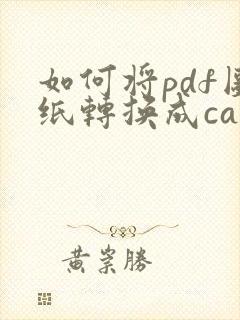 如何将pdf图
纸轉换成ca
黄崇勝